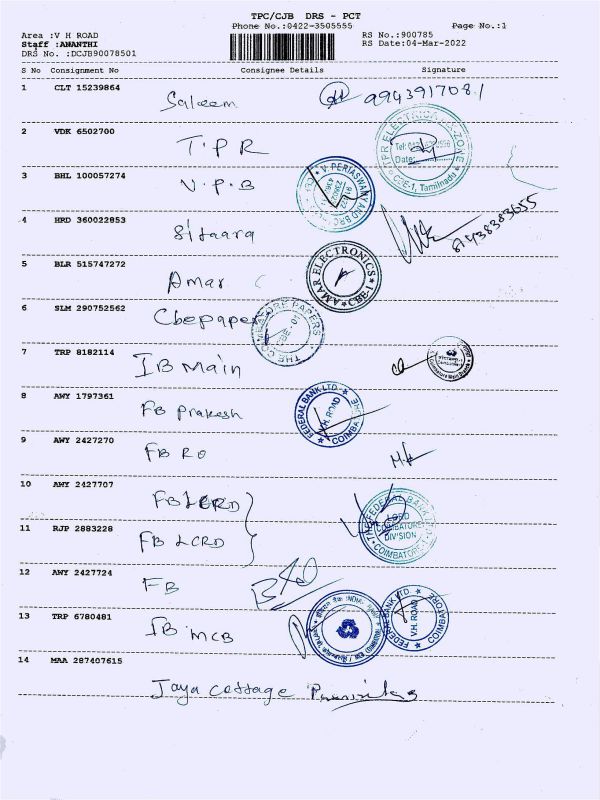 TPC/CJB DRS - PCT
Phone No.:0422-3505555 Page No.:1
Area :V H ROAD RS No.:900785
Staff :ANANTHI RS Date:04-Mar-2022
DRS No. :DCJB90078501
S No Consignment No Consignee Details Signature
1 CLT 15239864 Saleem 9943917081
2 VDK 6502700 T.P.R
TPR ELECTRICAL
CBE-1, Tamilnadu
3 BHL 100057274 V.P.B
V. PERIASWAMY AND
4 HRD 360022853 Sitaara
5 BLR 515747272 Amar
AMAR ELECTRONICS
CBE-1
6 SLM 290752562 Cbepaper
THE COIMBATORE PAPERS
7 TRP 8182114 IB Main
8 AWY 1797361 FB Prakesh
FEDERAL BANK LTD.
V.H. ROAD
COIMBATORE
9 AWY 2427270 FB RO
10 AWY 2427707 FB LCRD
11 RJP 2883228 FB LCRD
THE FEDERAL BANK
COIMBATORE
DIVISION
COIMBATORE
12 AWY 2427724 FB
13 TRP 6780481 IB MCB
FEDERAL BANK LTD.
V.H. ROAD
COIMBATORE
14 MAA 287407615 Jaya Cottage